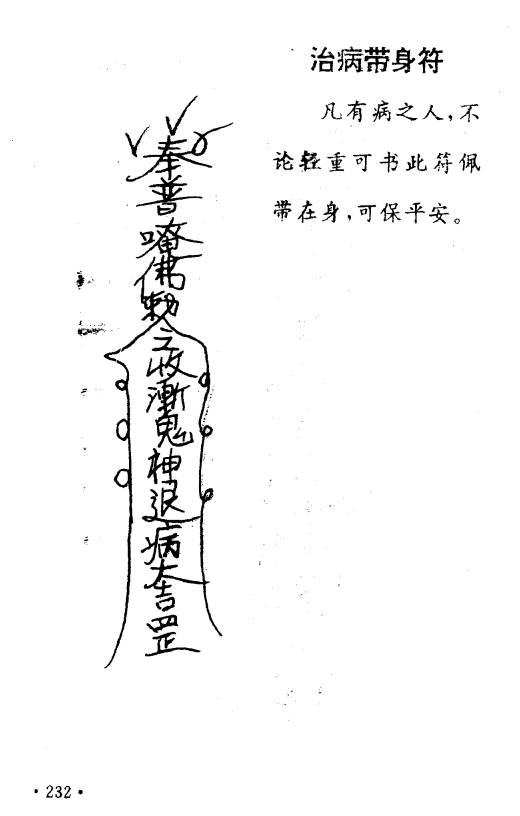 治病带身符
凡有病之人，不
论轻重可书此符佩
带在身，可保平安。
奉普唵佛勅令之收斬鬼神退病大吉罡
·232·